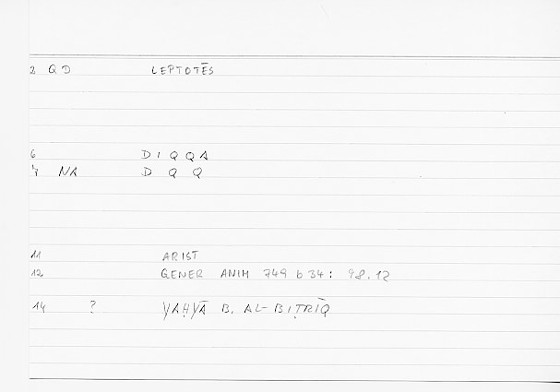 2 GD LEPTOTĒS
6 DIQQA
7 NA D Q Q
11 ARIST
12 GENER ANIM 749 b 34: 98.12
14 ? YAḤYĀ B. AL-BIṬRĪQ